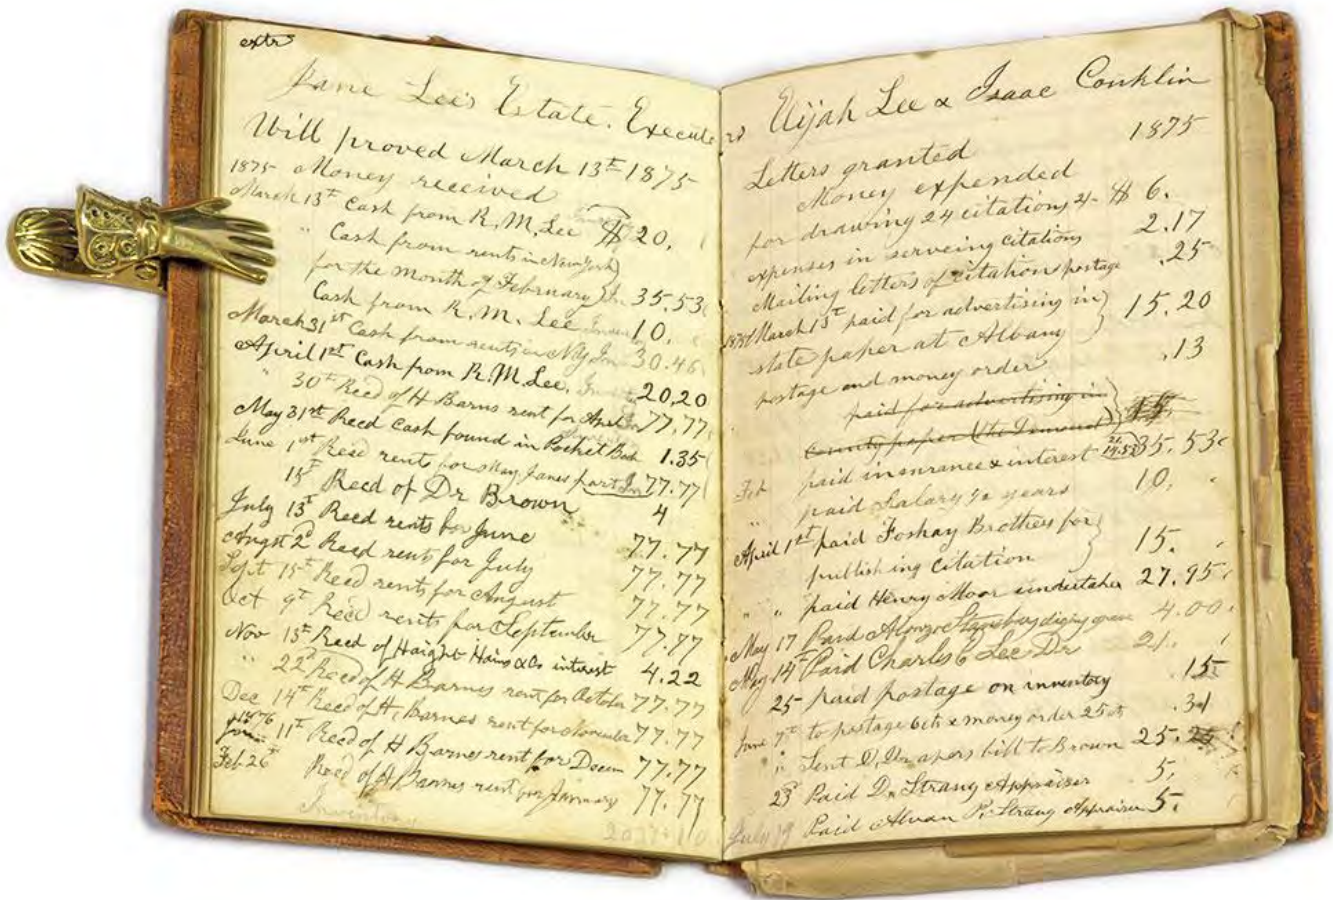 extr
Jane Lee's Estate. Execute
Will proved March 13th 1875
1875 Money received
March 13th Cash from R. M. Lee $ 20.
" Cash from rents in New York)
for the Month of February) In 35.53
Cash from R. M. Lee 10.
March 31st Cash from rents in N.Y. In 30.46
April 1st Cash from R. M. Lee. 20,20
" 30th Recd of H Barns rent for April 77.77
May 31st Recd Cash found in Pocket Book 1.35
June 1st Recd rents for May Janes part In 77.77
15th Recd of Dr Brown 4
July 13th Recd rents for June 77.77
Augst 2d Recd rents for July 77.77
Sept 15th Recd rents for August 77.77
Oct 9th Recd rents for September 77.77
Nov 15th Recd of Haight Hains & Co interest 4.22
" 22d Recd of H Barnes rent for October 77.77
Dec 14th Recd of H, Barnes rent for November 77.77
1876 11th Recd of H Barnes rent for Decm 77.77
Feb 26th Recd of H Barnes rent for January 77.77
Inventory
rs Elijah Lee & Isaac Conklin
Letters granted 1875
Money expended
for drawing 24 citations 2/- $ 6.
expenses in serveing Citations 2.17
Mailing letters of Citation postage .25
1875 March 13th paid for advertising in)
state paper at Albany } 15.20
postage and money order .13
paid for advertising in
County paper (the Democrat)
Feb paid insurance & interest 35.53
" paid Salary ½ years 10,
April 1st paid Foshay Brothers for
publishing Citation } 15.
" " paid Henry Moor undertaker 27.95
May 17 Paid Alonzo Stansbury diging grave 4.00
May 14th Paid Charles E Lee Dr 21.
25 paid postage on inventory .15
June 7th to postage 6cts & money order 25cts .31
" Sent D, Drapers bill to Brown 25.
23d Paid D. Strang Appraiser 5,
July 19 Paid Alvan P. Strang Appraiser 5.